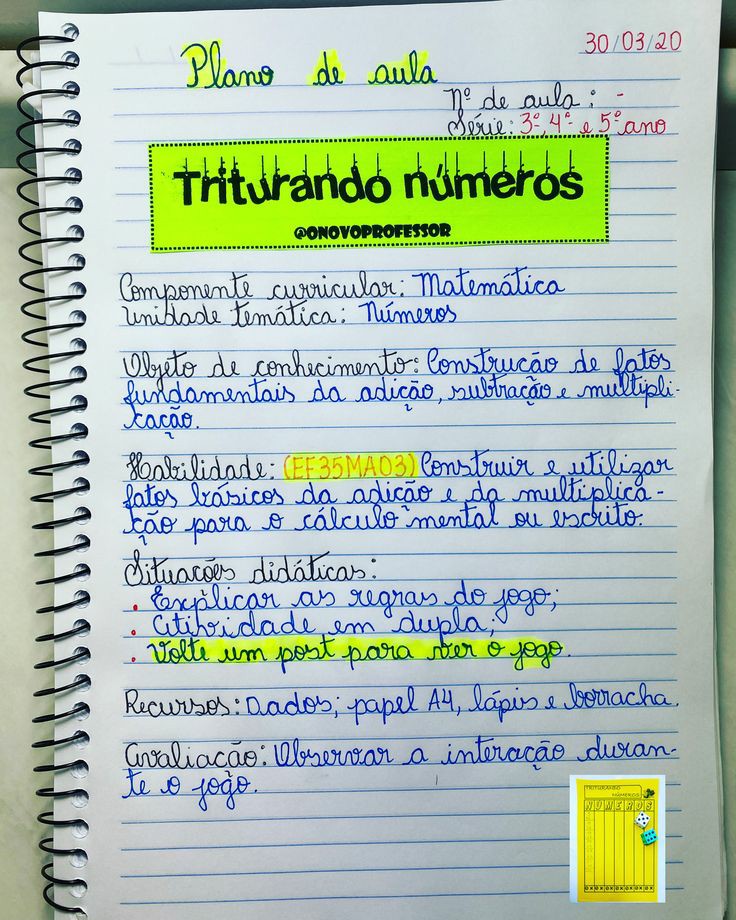 30/03/20
Plano de aula
Nº de aula: -
Série: 3º, 4º e 5º ano
Triturando números
@ONOVOPROFESSOR
Componente curricular: Matemática
Unidade temática: Números
Objeto de conhecimento: Construção de fatos
fundamentais da adição, subtração e multipli-
cação.
Habilidade: (EF35MA03) Construir e utilizar
fatos básicos da adição e da multiplica-
ção para o cálculo mental ou escrito.
Situações didáticas:
. Explicar as regras do jogo;
. Atividade em dupla;
. Volte um post para ver o jogo.
Recursos: Dados, papel A4, lápis e borracha.
Avaliação: Observar a interação duran-
te o jogo.
TRITURANDO
NÚMEROS
NUMEROS